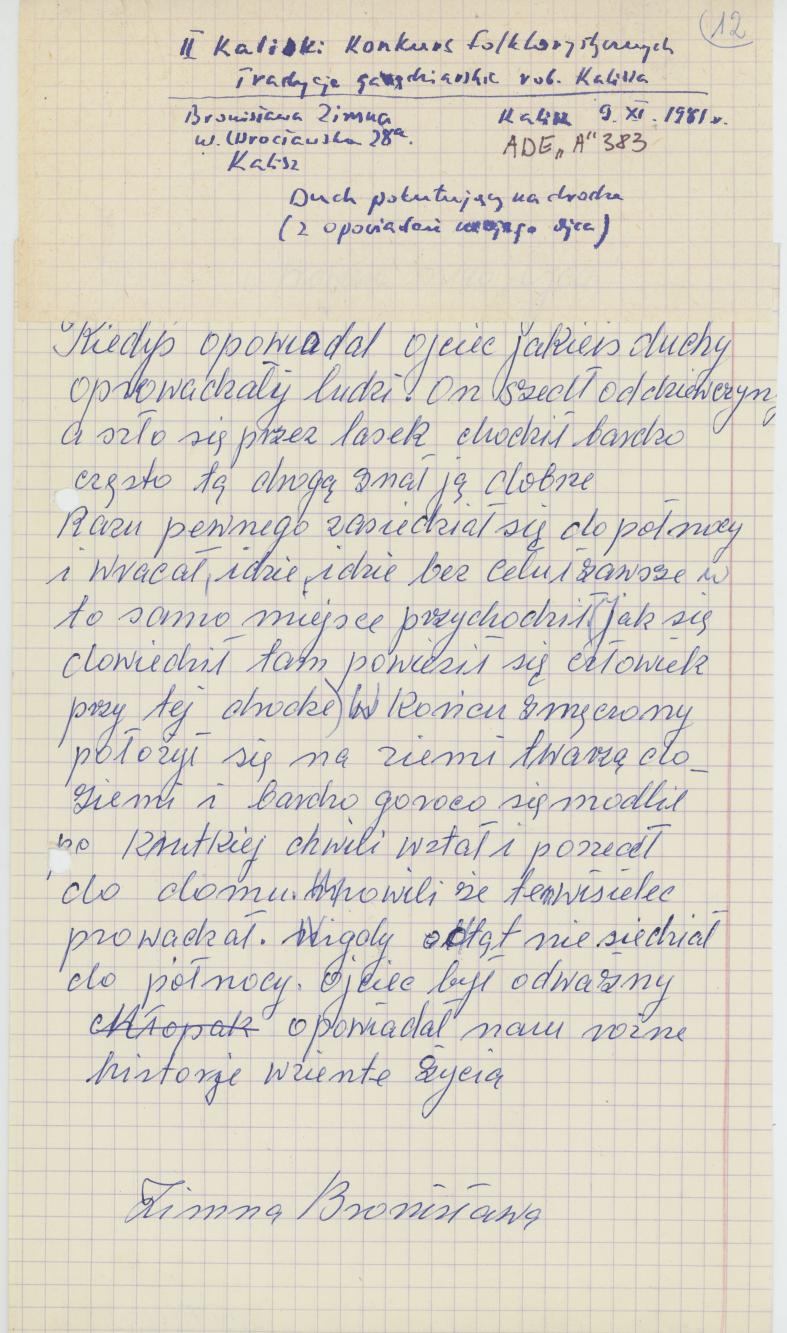 12
II Kaliski Konkurs Folklorystycznych
Tradycje gawędziarskie rob. Kalisza
Bronisława Zimna
Kalisz 9. XI. 1981 r.
w. Wrocławska 28a.
ADE „A" 383
Kalisz
Duch pokutujący na drodze
(z opowiadań mojego ojca)
Kiedyś opowiadał ojciec jakieis duchy
oprowadzały ludzi. On szedł od dziewczyny
a szło się przez lasek chodził bardzo
często tą drogą znał ją dobrze
Razu pewnego zasiedział się do północy
i wracał, idzie, idzie bez celu i zawsze w
to samo miejsce przychodził (jak się
dowiedził tam powiesił się człowiek
przy tej drodze) W końcu zmęczony
położył się na ziemi twarzą do_
ziemi i bardzo goroco się modlił
po krutkiej chwili wstał i poszedł
do domu. Mówili że ten wisielec
prowadzał. Nigdy odtąt nie siedział
do północy. Ojciec był odważny
chłopak opowiadał nam rożne
historje wziente z życia
Zimna Bronisława